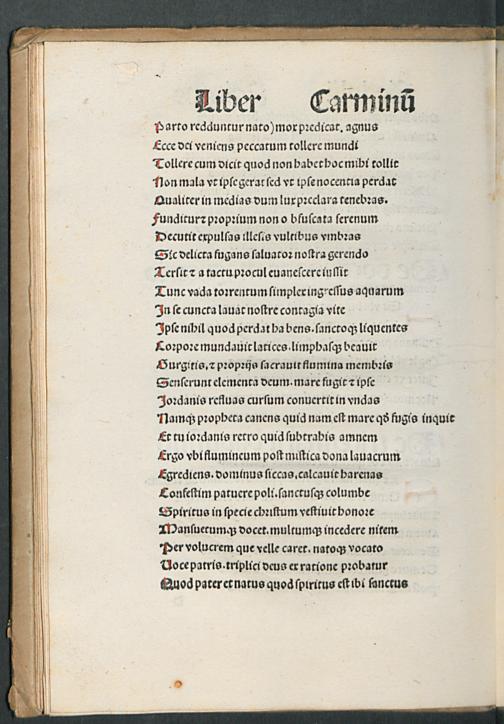 Liber Carminū
Parto redduntur nato) mox predicat. agnus
Ecce dei veniens peccatum tollere mundi
Tollere cum dicit quod non habet hoc mihi tollit
Non mala vt ipse gerat sed vt ipse nocentia perdat
Qualiter in medias dum lux preclara tenebras.
Funditur ⁊ proprium non obfuscata serenum
Decutit expulsas illesis vultibus vmbras
Sic delicta fugans saluator nostra gerendo
Tersit ⁊ a tactu procul euanescere iussit
Tunc vada torrentum simplex ingressus aquarum
In se cuncta lauat nostre contagia vite
Ipse nihil quod perdat ha bens. sanctoqꝫ liquentes
Corpore mundauit latices. limphasqꝫ beauit
Gurgitis. ⁊ proprijs sacrauit flumina membris
Senserunt elementa deum. mare fugit ⁊ ipse
Jordanis refluas cursum conuertit in vndas
Namqꝫ propheta canens quid nam est mare qđ fugis inquit
Et tu iordanis retro quid subtrahis amnem
Ergo vbi flumineum post mistica dona lauacrum
Egrediens. dominus siccas. calcauit harenas
Confestim patuere poli. sanctusqꝫ columbe
Spiritus in specie christum vestiuit honore
Mansuetumqꝫ docet. multumqꝫ incedere nitem
Per volucrem que velle caret. natoqꝫ vocato
Uoce patris. triplici deus ex ratione probatur
Quod pater et natus quod spiritus est ibi sanctus